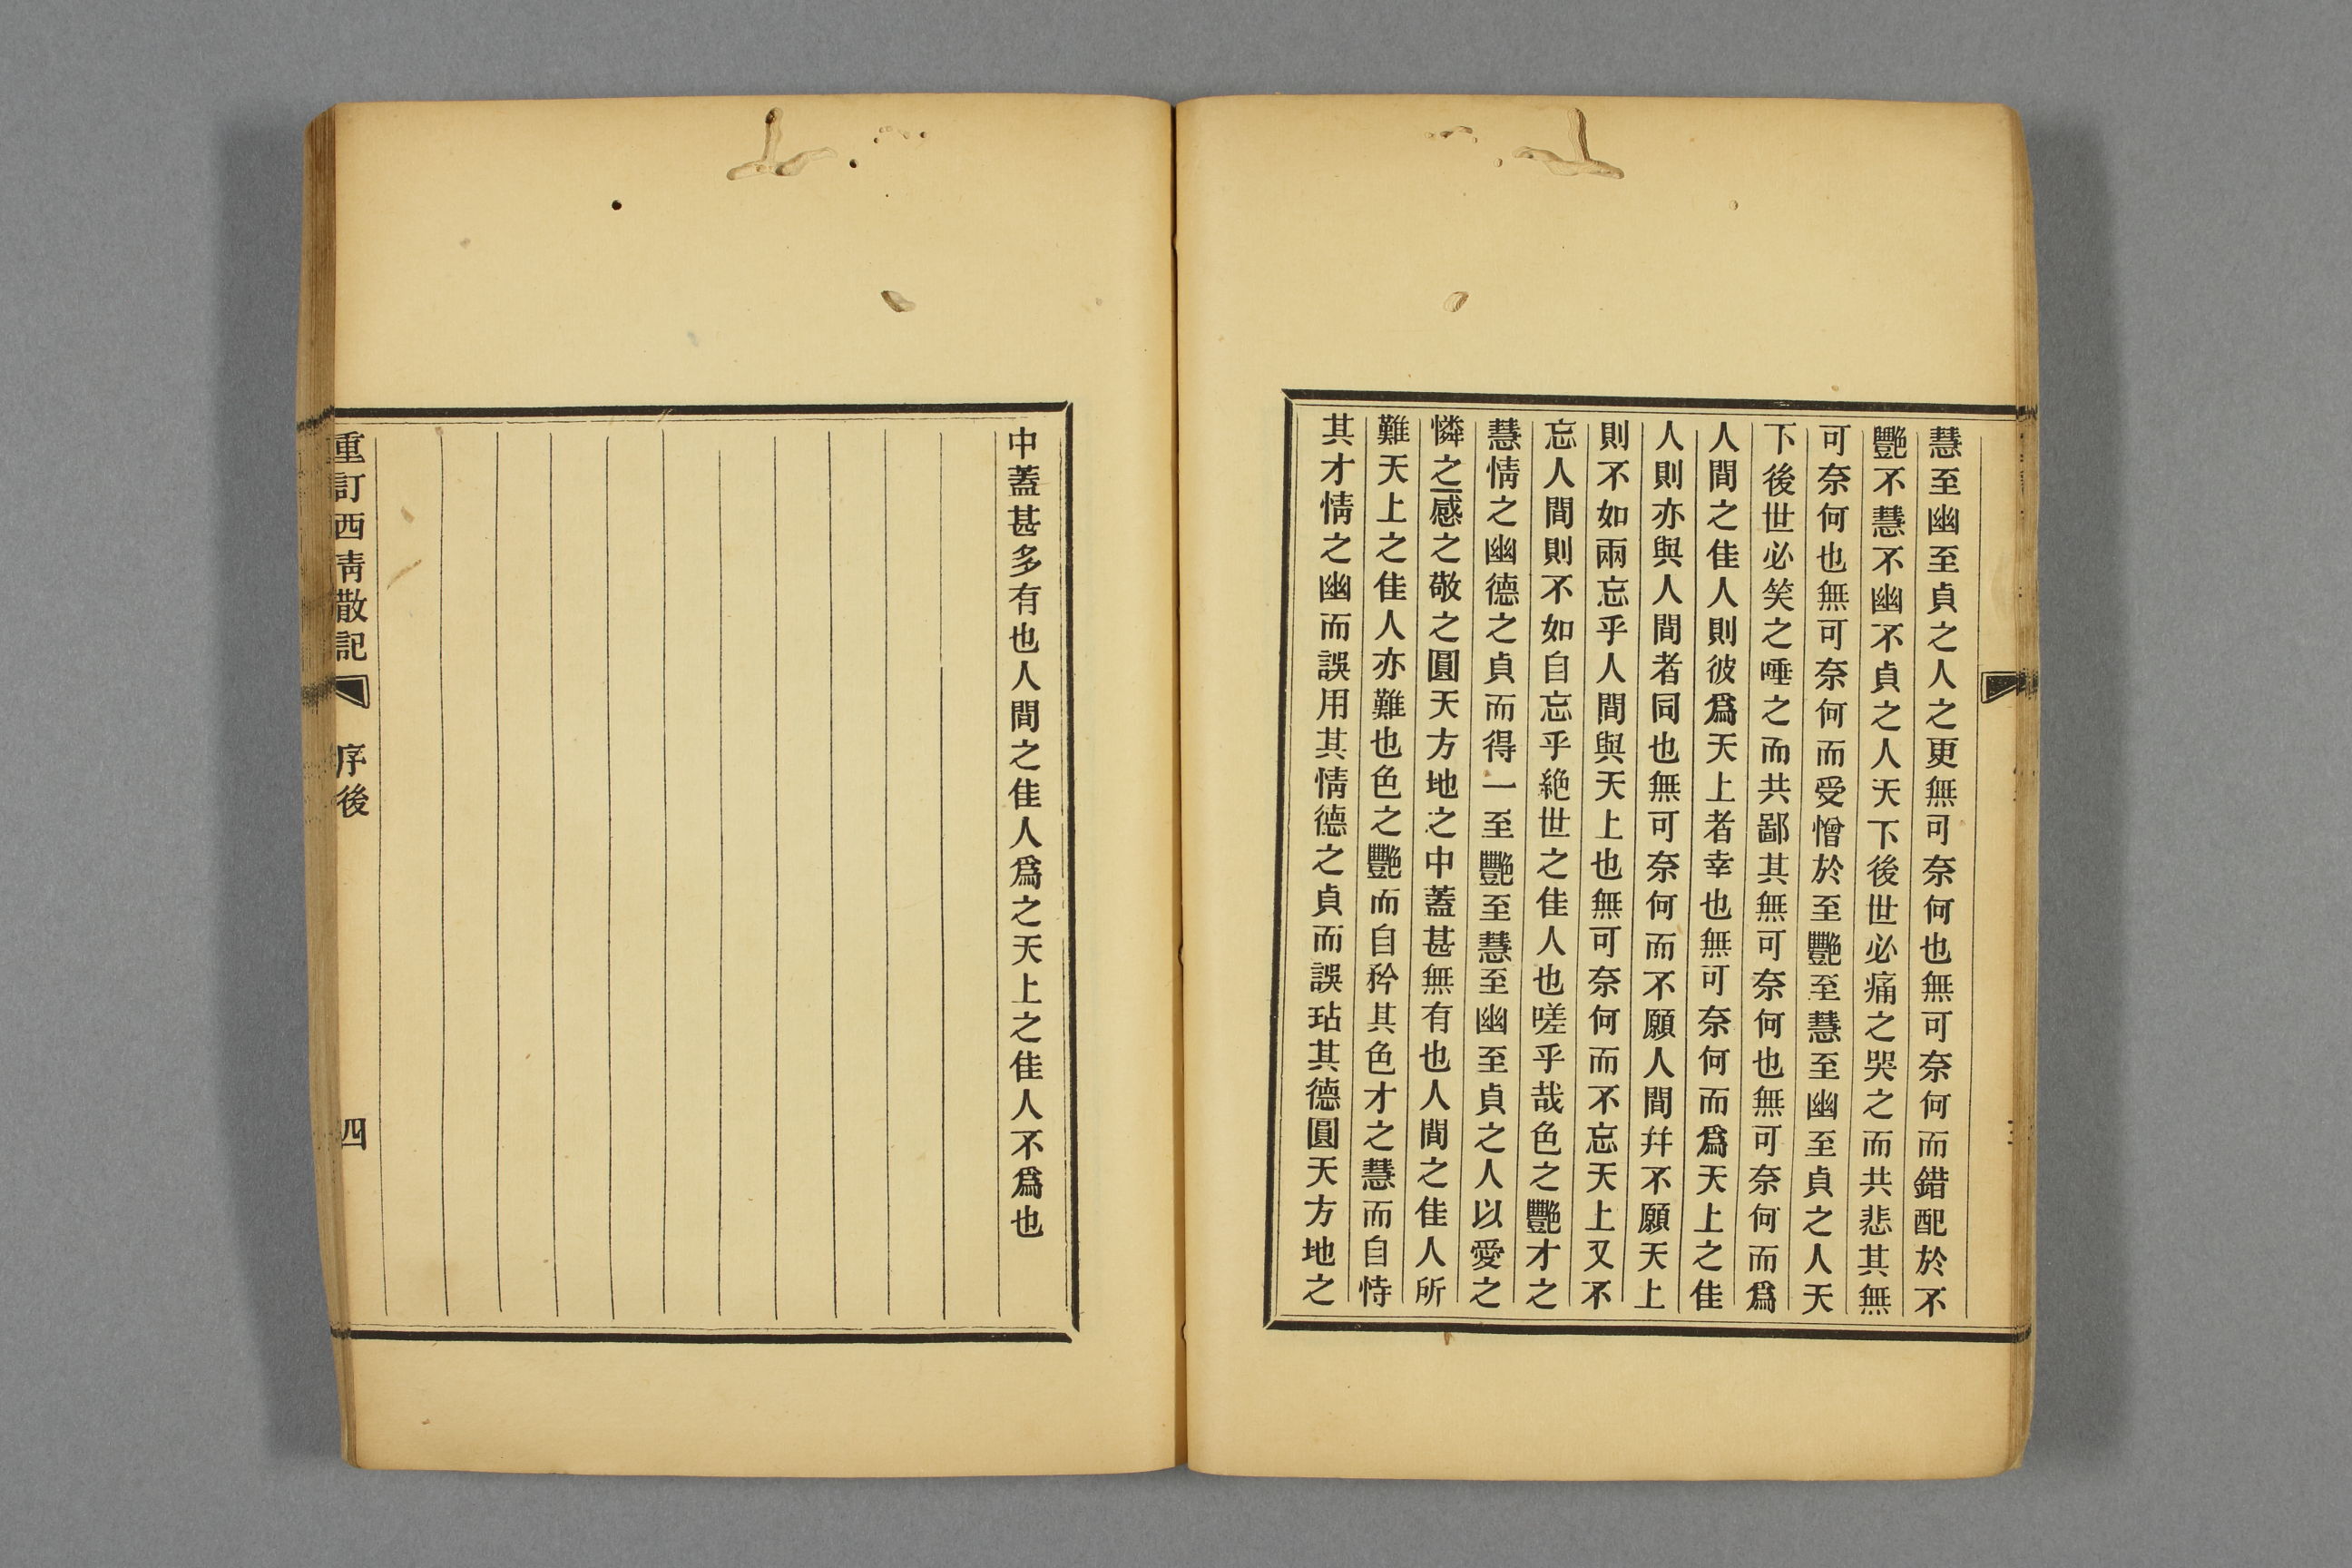 慧至幽至貞之人之更無可奈何也無可奈何而錯配於不
豔不慧不幽不貞之人天下後世必痛之哭之而共悲其無
可奈何也無可奈何而受憎於至豔至慧至幽至貞之人天
下後世必笑之唾之而共鄙其無可奈何也無可奈何而爲
人間之佳人則彼爲天上者幸也無可奈何而爲天上之佳
人則亦與人間者同也無可奈何而不願人間幷不願天上
則不如兩忘乎人間與天上也無可奈何而不忘天上又不
忘人間則不如自忘乎絶世之佳人也嗟乎哉色之豔才之
慧情之幽德之貞而得一至豔至慧至幽至貞之人以愛之
憐之感之敬之圓天方地之中蓋甚無有也人間之佳人所
難天上之佳人亦難也色之豔而自矜其色才之慧而自恃
其才情之幽而誤用其情德之貞而誤玷其德圓天方地之
中蓋甚多有也人間之佳人爲之天上之佳人不爲也
重訂西青散記 序後 四